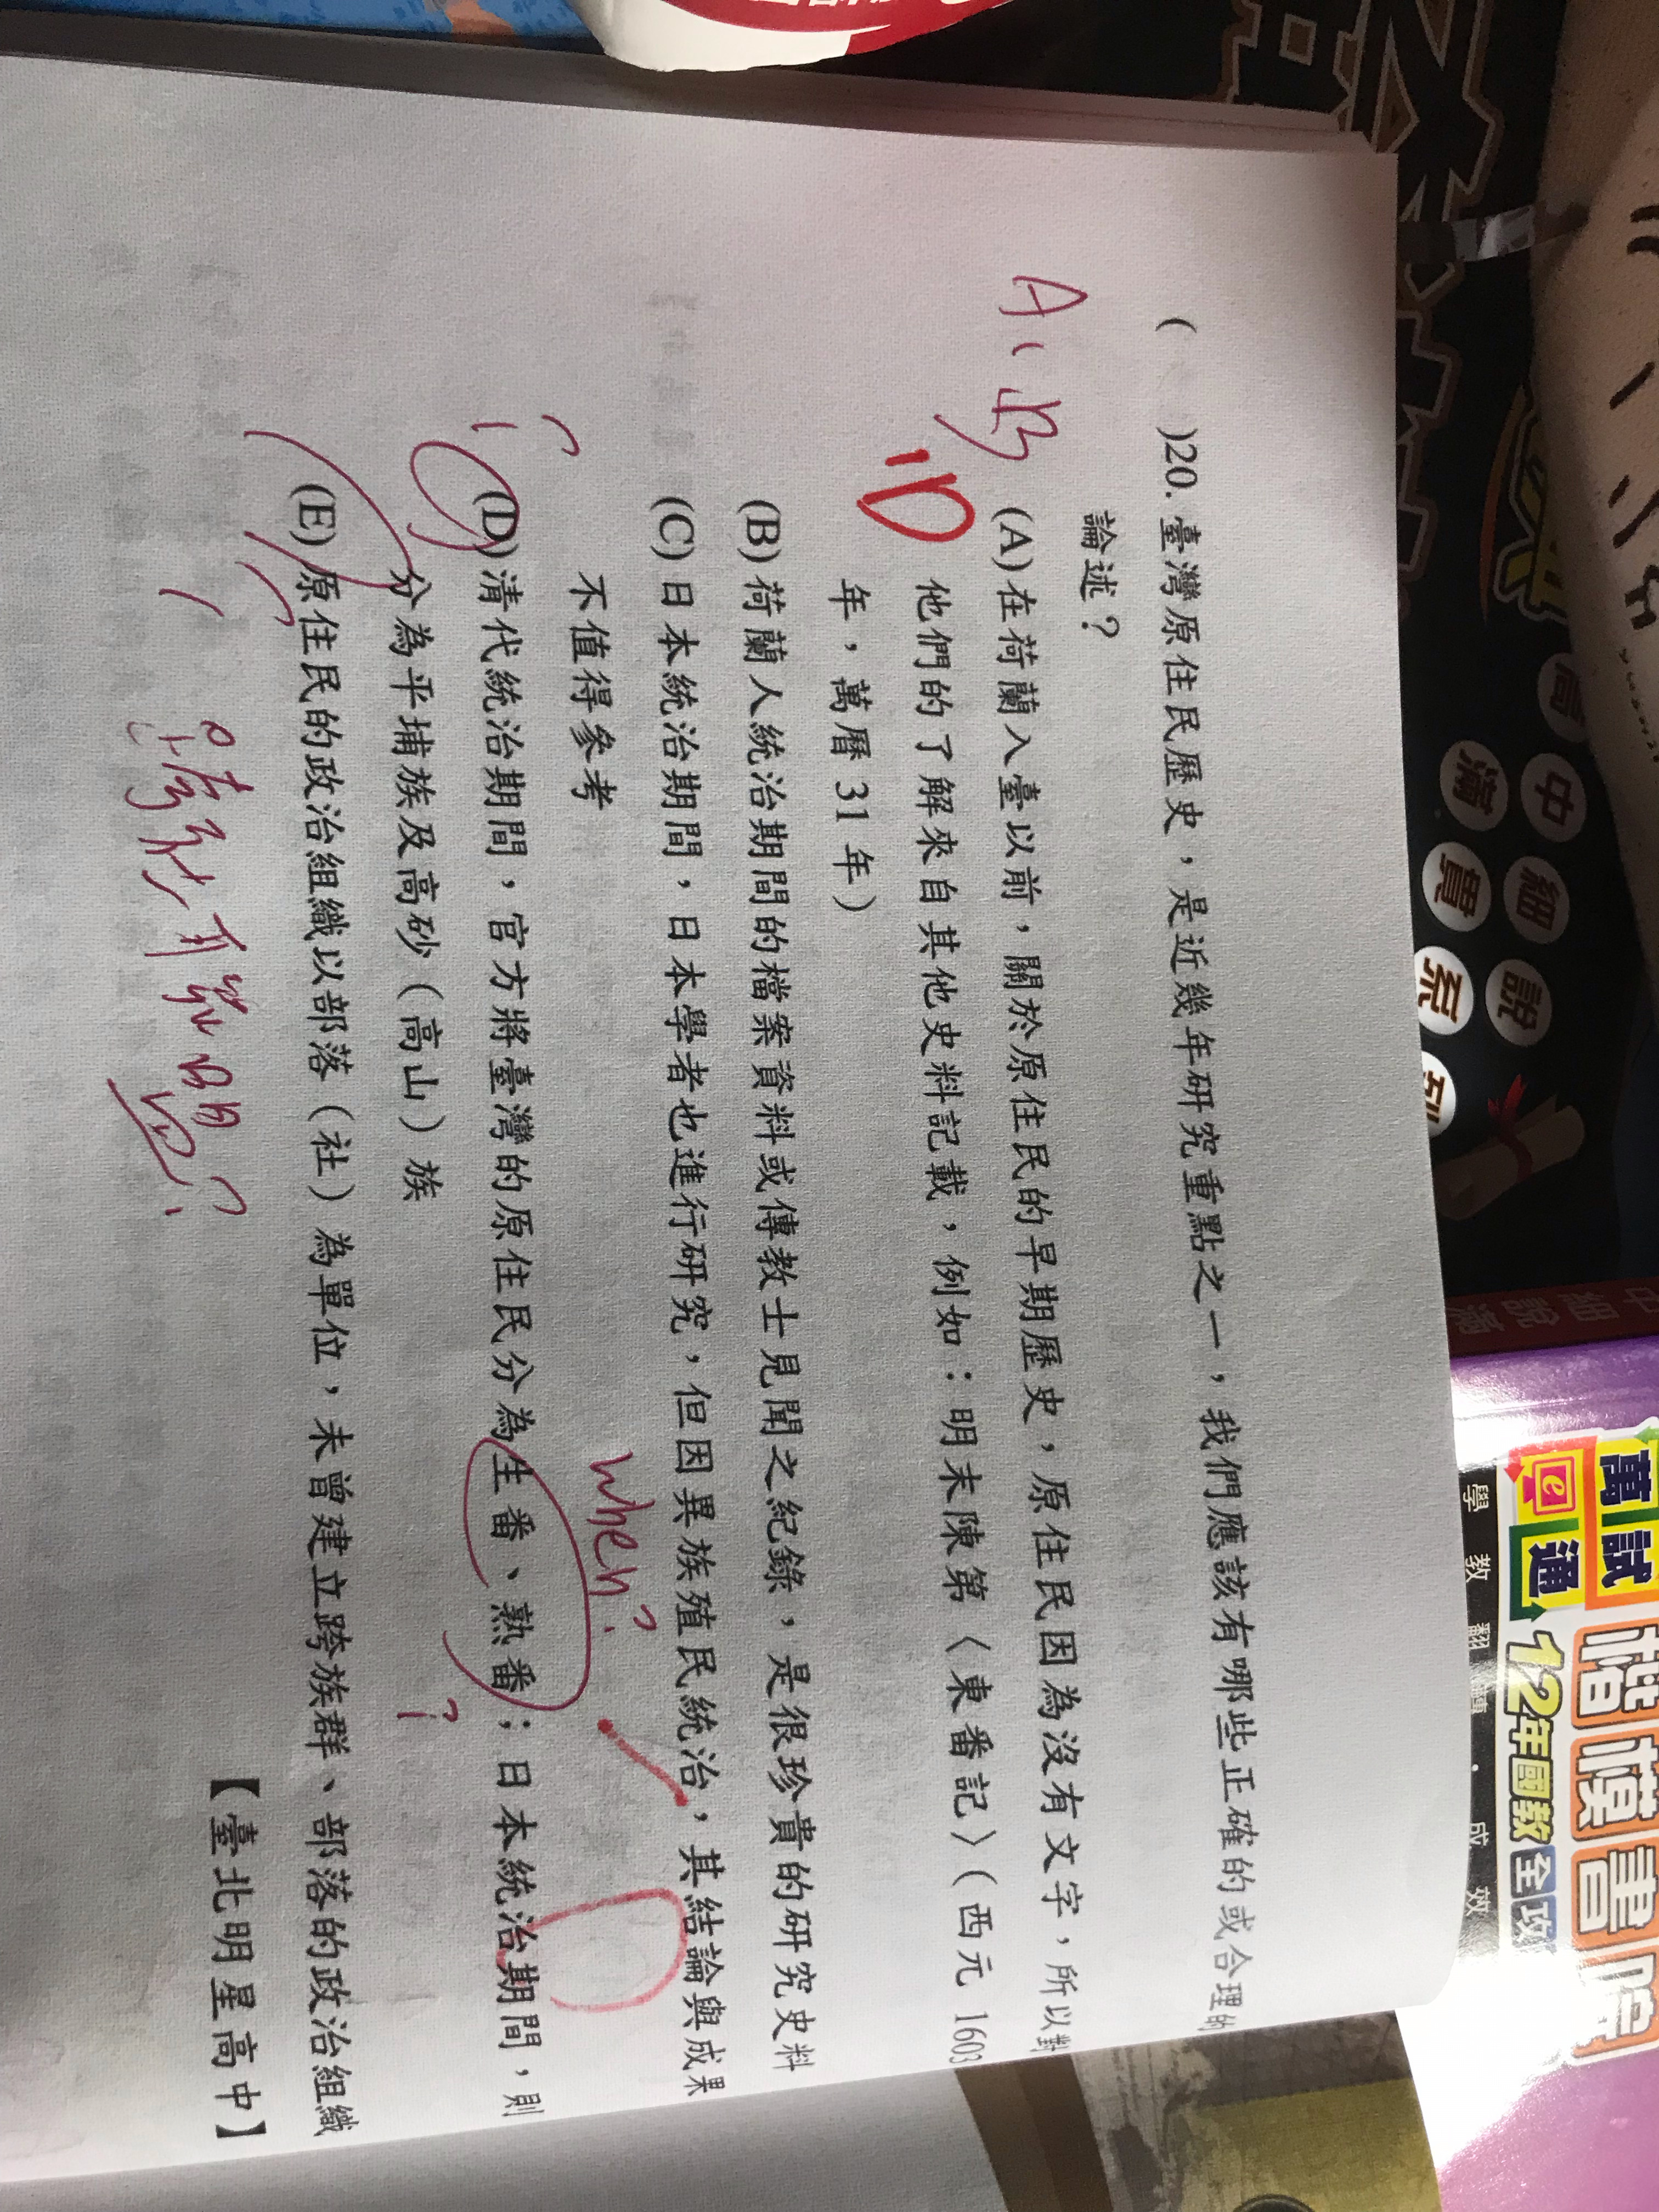 ( )20.臺灣原住民歷史，是近幾年研究重點之一，我們應該有哪些正確的或合理的
論述？
(A)在荷蘭入臺以前，關於原住民的早期歷史，原住民因為沒有文字，所以對
他們的了解來自其他史料記載，例如：明末陳第〈東番記〉（西元 1603
年，萬曆 31 年）
(B)荷蘭人統治期間的檔案資料或傳教士見聞之紀錄，是很珍貴的研究史料
(C)日本統治期間，日本學者也進行研究，但因異族殖民統治，其結論與成果
不值得參考
(D)清代統治期間，官方將臺灣的原住民分為生番、熟番；日本統治期間，則
分為平埔族及高砂（高山）族
(E)原住民的政治組織以部落（社）為單位，未曾建立跨族群、部落的政治組織
【臺北明星高中】
A
B
D
when?
?
高中
細說
滿貫
系列
萬試
e通
楷模書院
12年國教全攻